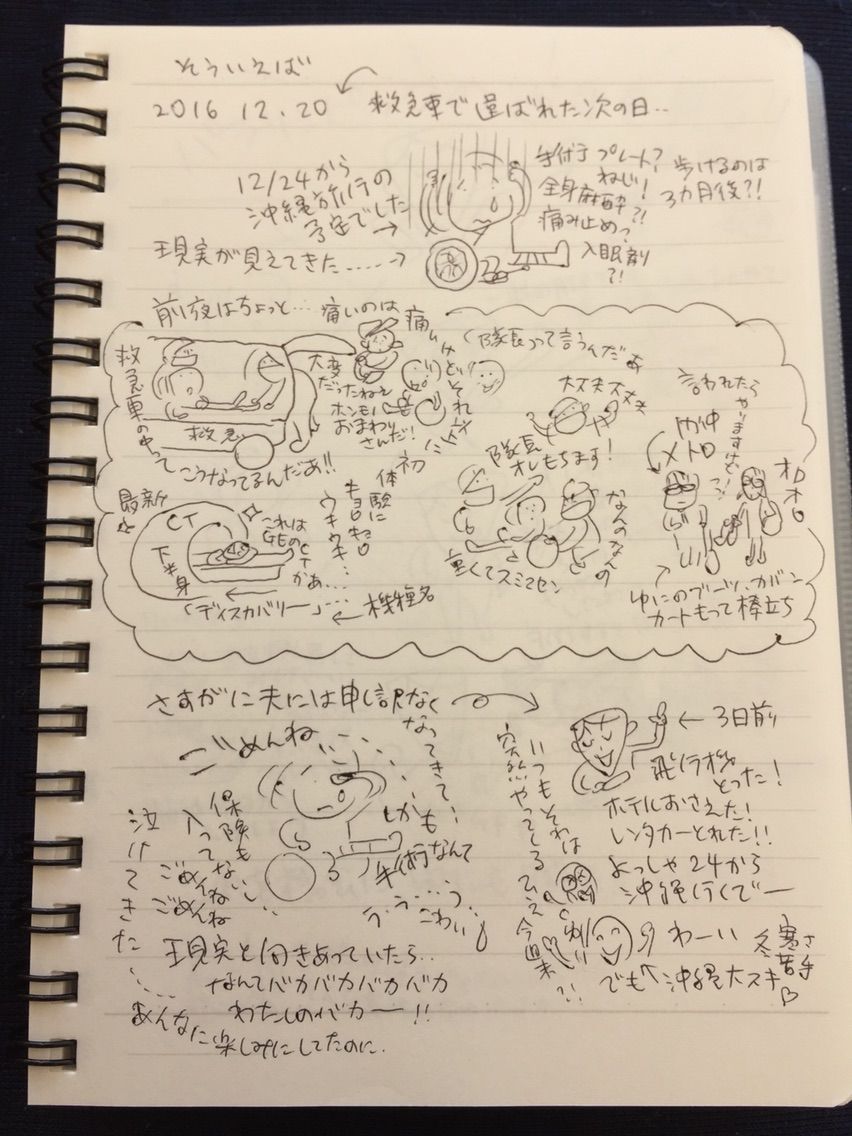 そういえば
2016 12.20
救急車で運ばれた次の日..
12/24から
沖縄旅行の
予定でした
現実が見えてきた.....
手術 プレート?
ねじ!
全身麻酔?!
痛み止めっ?
入眠剤
?!
歩けるのは
3カ月後?!
前夜はちょっと...
痛いのは
痛いけどそれ以上に
初
体験に
キョロキョロ
ウキウキ...
救急車の中って
こうなってるんだあ!!
救急
大変
だったねぇ
ホンモノ
おまわり
さんだ!
「隊長」って言うんだぁ
大丈夫大丈夫
隊長
オレもちます!
なんのなんの
重くてスミマセン
言われたら
やりますけど!
メトロ
オロオロ
ゆにのブーツ、カバン
カートもって棒立ち
最新
CT
下半身
これは
GEの
CTかぁ...
「ディスカバリー」....
機種名
さすがに夫には申し訳なく
なってきて、
ごめんね...
しかも
手術なんて
う・う・・・う
こわい
保険も
入って
ない...
ごめんね
ごめんね
泣けてきた.....
現実と向きあっていたら..
なんてバカバカバカバカ
わたしのバカー!!
あんなに楽しみにしてたのに.
いつもそれは
突然やってくる
今週末?!
3日前
飛行機
とった!
ホテルおさえた!
レンタカーとれた!!
よっしゃ24から
沖縄行くでー
わーい
でも
沖縄大スキ♡
冬
寒さ
苦手